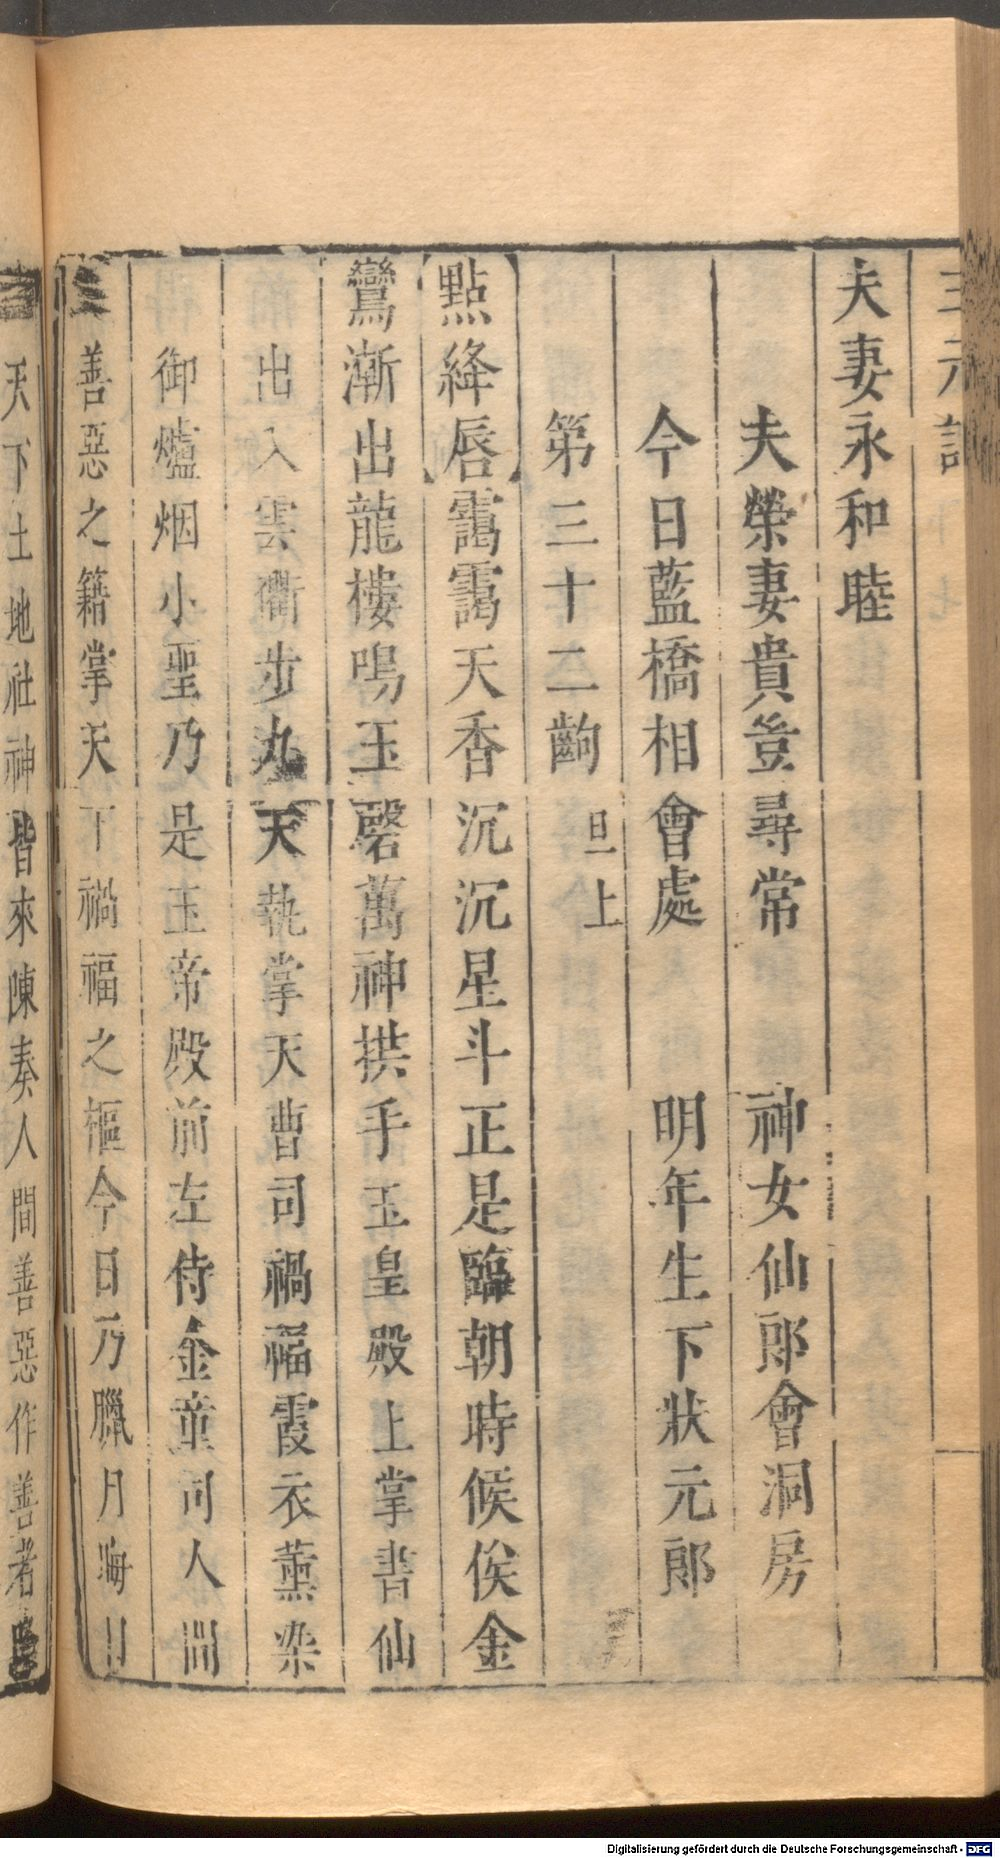 三元記
夫妻永和睦
夫榮妻貴豈尋常 神女仙郎會洞房
今日藍橋相會處 明年生下狀元郎
第三十二齣 旦上
點絳唇靄靄天香沉沉星斗正是臨朝時候俟金
鸞漸出龍樓鳴玉磬萬神拱手玉皇殿上掌書仙
出入雲衢步九天執掌天曹司禍福霞衣薰染
御爐烟小聖乃是玉帝殿前左侍金童司人間
善惡之籍掌天下禍福之樞今日乃臘月晦日
天下土地社神皆來陳奏人間善惡作善者
Digitalisierung gefördert durch die Deutsche Forschungsgemeinschaft - DFG